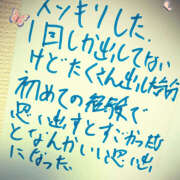 スッキリした。
1回しか出してない
けどたくさん出した
初めての経験で
思い出すとすごかった
となんかいい思い出
になった。